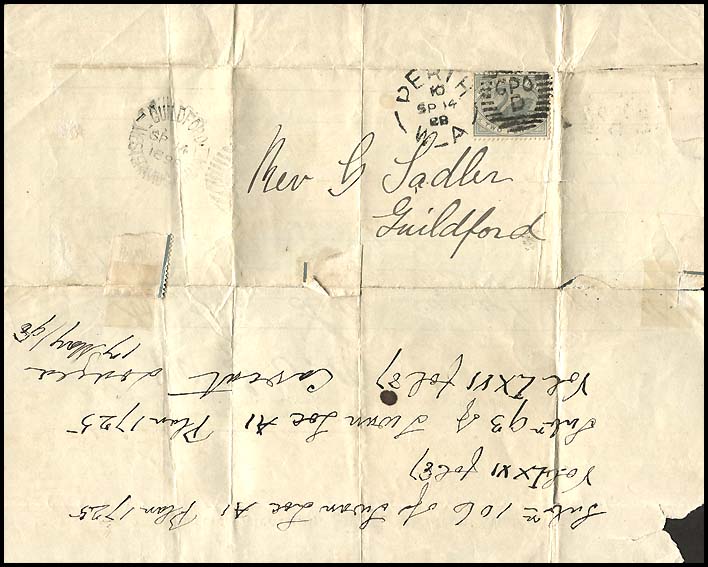 PERTH
10
SP 14
98
W-A
GPO
GUILDFORD
SP 14
Rev G Sadler
Guildford
Subn 106 of Swan Loc A1 Plan 1725
Vol LXXI fol 87
Subn 93 of Swan Loc A1 Plan 1725
Vol LXXI fol 87
Caveat lodged
17 May/98